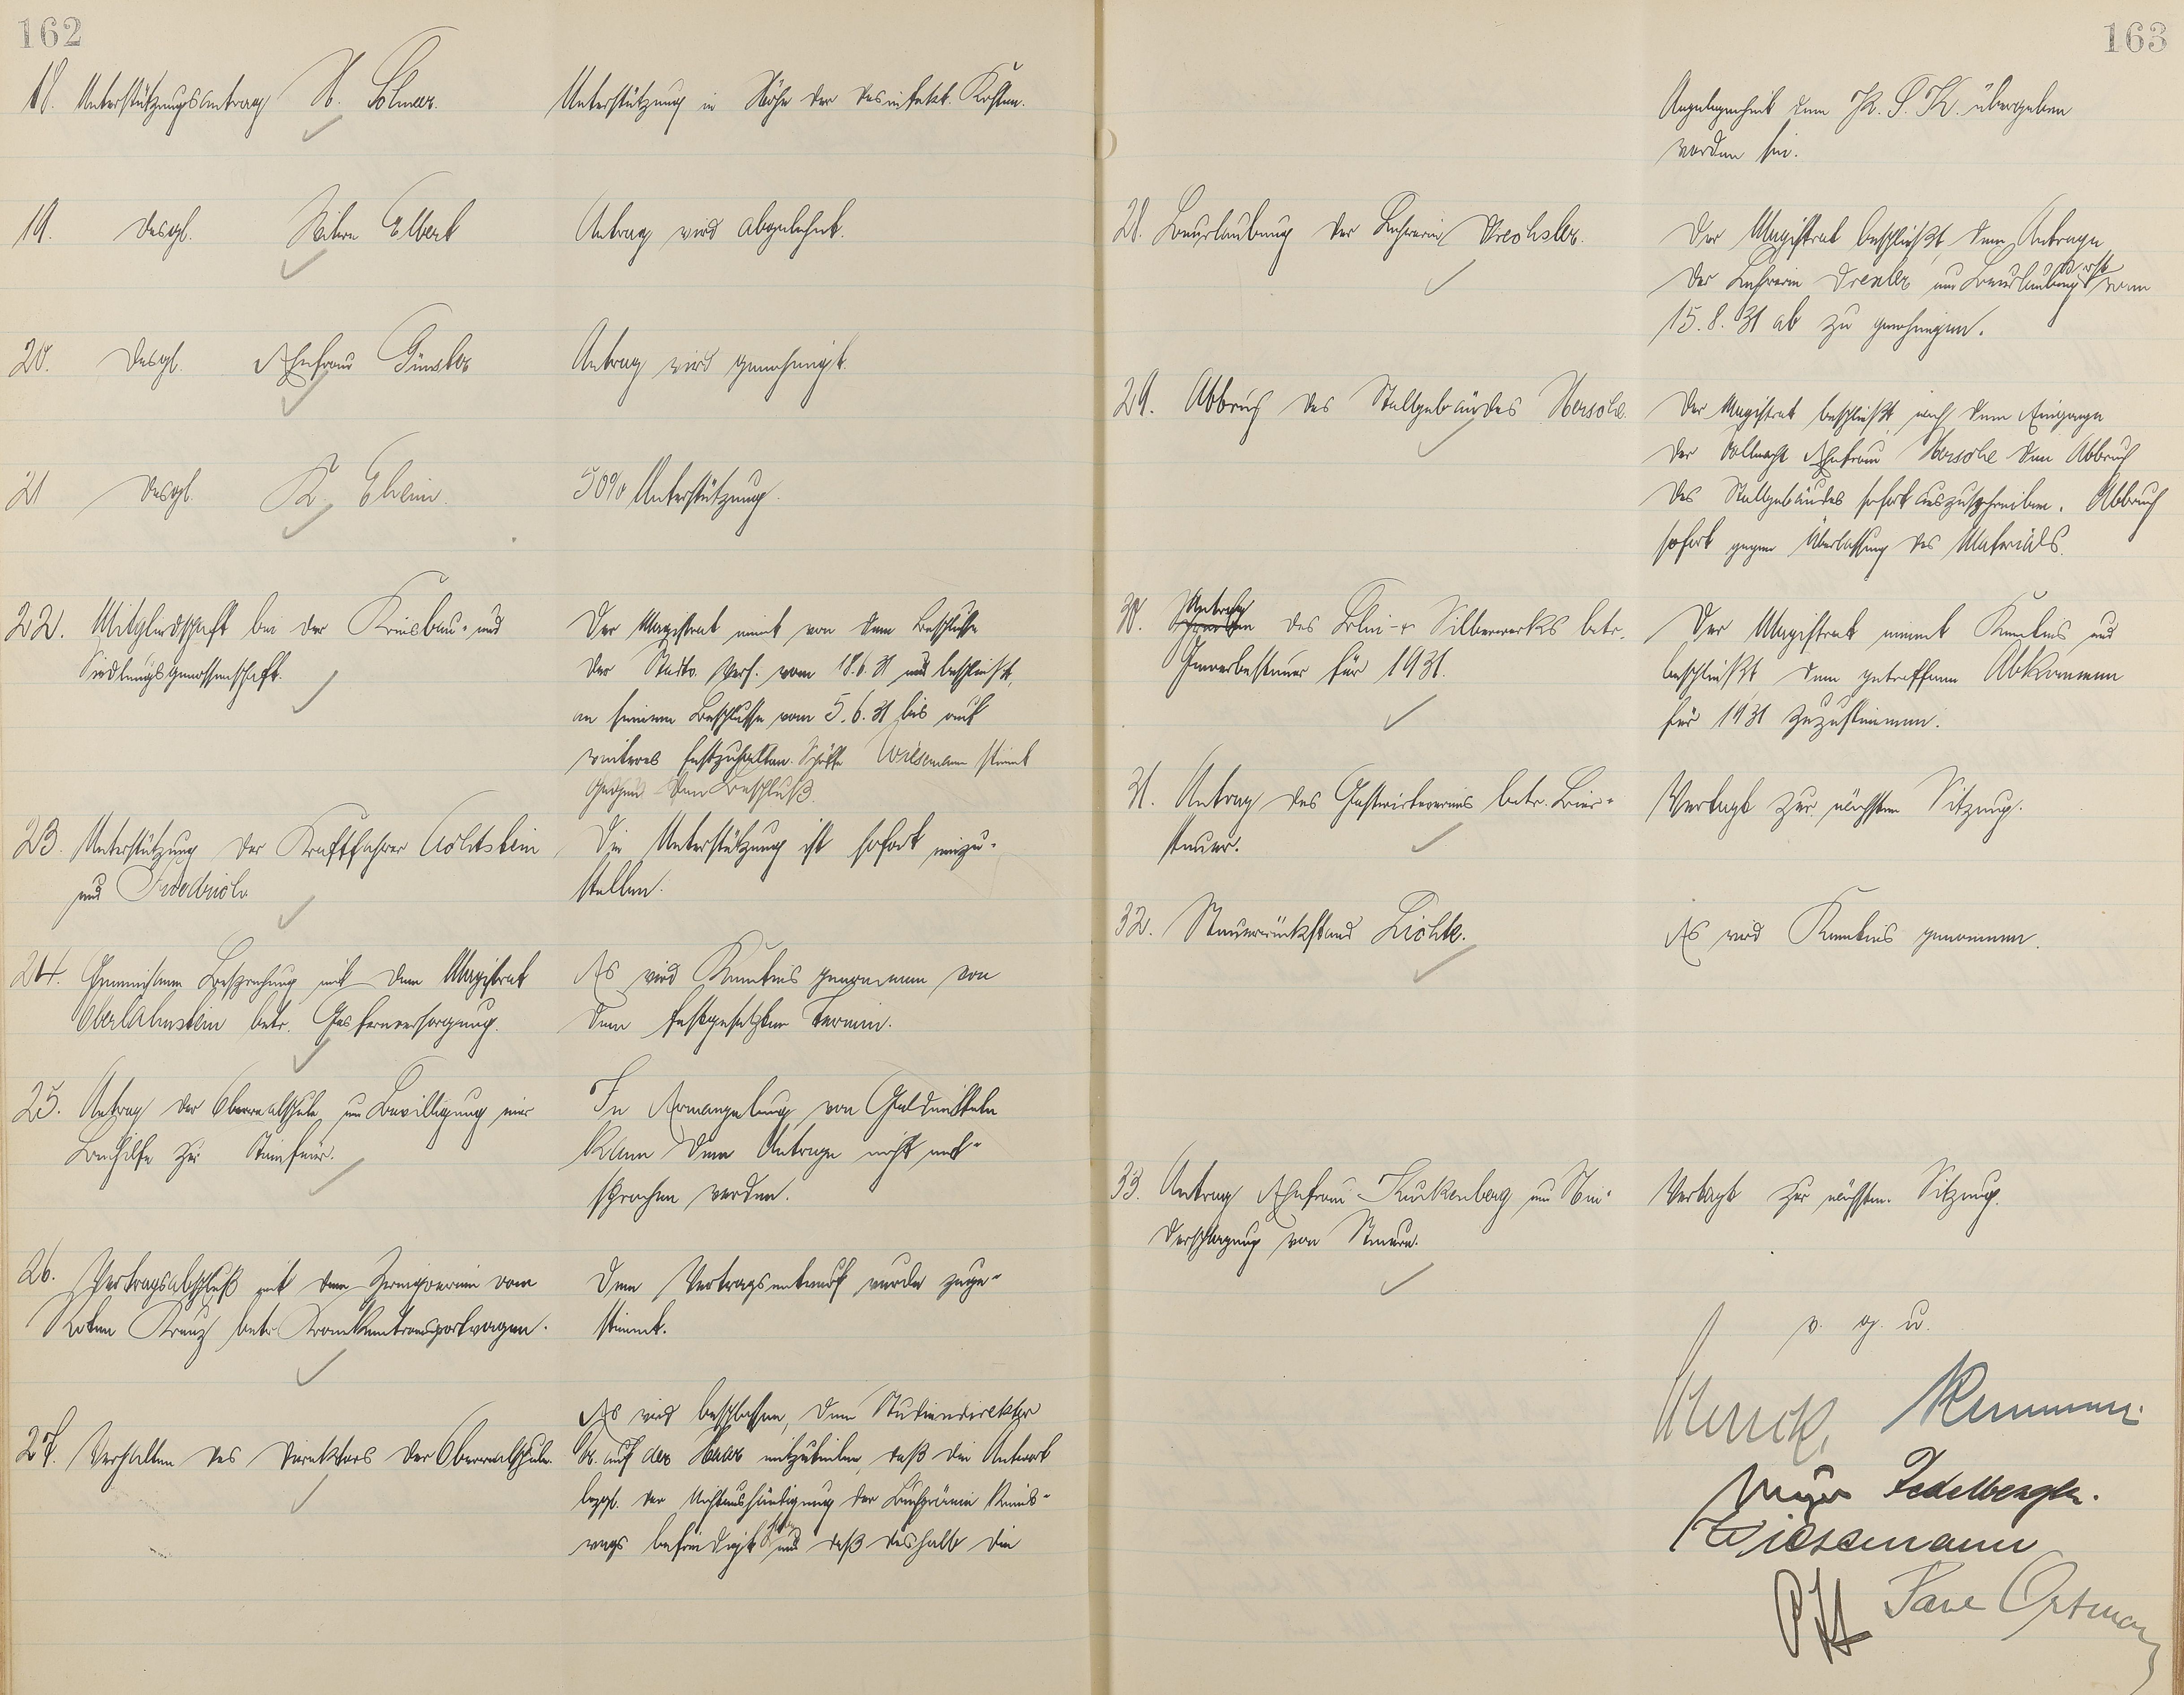 162
18. Unterstützungsantrag H. Solmer. Unterstützung in Höhe der desinfekt. Kosten.
19. desgl. Witwe Elbert Antrag wird abgelehnt.
20. desgl. Ehefrau Günsler Antrag wird genehmigt.
21 desgl. K. Eheim. 50% Unterstützung.
22. Mitgliedschaft bei der Kreisbau- und
Siedlungsgenossenschaft.
Der Magistrat nimt von dem Beschlusse
der Stadtv. Vers. vom 18.6.31 und beschließt,
an seinem Beschlusse vom 5.6.31 bis auf
weiteres festzuhalten. Schöffe Wiesemann stimt
gegen den Beschluß.
23. Unterstützung der Kraftfahrer Achtstein
und Friedrich
Die Unterstützung ist sofort einzu-
stellen.
24. Gemeinsame Besprechung mit dem Magistrat
Oberlahnstein betr. Gasfernversorgung.
Es wird Kenntnis genommen von
dem festgesetzten Termin.
25. Antrag der Oberrealschule um Bewilligung einer
Beihilfe zur Steinfeier.
In Ermangelung von Geldmitteln
kann dem Antrage nicht ent-
sprochen werden.
26. Vertragsabschluß mit dem Zweigverein vom
Roten Kreuz betr. Krankentransportwagen.
Dem Vertragsentwurf wurde zuge-
stimmt.
27. Verhalten des Direktors der Oberrealschule.
Es wird beschlossen, dem Studiendirektor
Dr. auf der Haar mitzuteilen, daß die Antwort
bezgl. der Nichtaushändigung der Buchprämie keines-
wegs befriedigt und daß deshalb die
163
Angelegenheit dem P. S. K. übergeben
worden sei.
28. Beurlaubung der Lehrerin Drechsler.
Der Magistrat beschließt, dem Antrage
der Lehrerin Drexler um Beurlaubung erst vom
15.8.31 ab zu genehmigen.
29. Abbruch des Stallgebäudes Hersche.
Der Magistrat beschließt, nach dem Eingange
der Vollmacht Ehefrau Hersche den Abbruch
des Stallgebäudes sofort auszuschreiben. Abbruch
sofort gegen Überlassung des Materials.
30. Antrag des Blei- u. Silberwerks betr.
Gewerbesteuer für 1931.
Der Magistrat nimmt Kenntnis und
beschließt dem getroffenen Abkommen
für 1931 zuzustimmen.
31. Antrag des Gastwirtevereins betr. Bier-
steuer.
Vertagt zur nächsten Sitzung.
32. Steuerrückstand Lichte.
Es wird Kenntnis genommen.
33. Antrag Ehefrau Kukenberg um Nie-
derschlagung von Steuern.
Vertagt zur nächsten Sitzung.
v. g. u.
Meyer Fedelberger.
Wiesemann